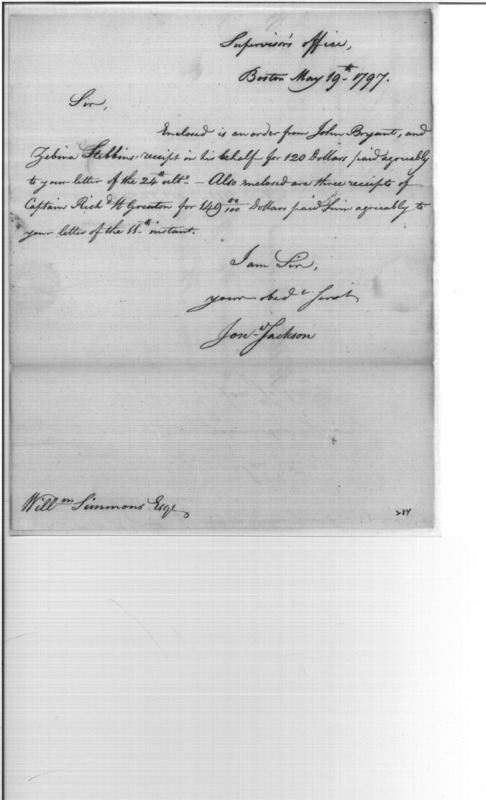 Supervisor's office,
Boston May 19th 1797.
Sir,
Enclosed is an order from John Bryant, and
Zebina Stebbins receipt in his behalf for 120 Dollars paid agreeably
to your letter of the 24th ulto - Also enclosed are three receipts of
Captain Richd H Greaton for 149 Dollars paid him agreeably to
your letter of the 11th instant.
I am Sir,
your obedt servt
Jona Jackson
Willm Simmons Esqr
214